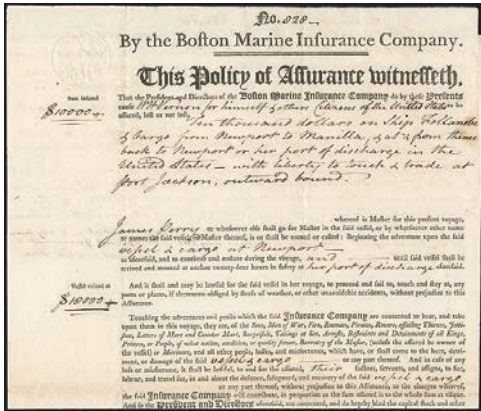 No. 828
By the Boston Marine Insurance Company.
This Policy of Assurance witnesseth,
Sum insured
$10000
That the President and Directors of the Boston Marine Insurance Company do by these Presents
cause Wm Vernon for himself & others Citizens of the United States to be
assured, lost or not lost,
Ten thousand dollars on Ship Hollander
& Cargo from Newport to Manilla, & at & from thence
back to Newport or her port of discharge in the
United States – with liberty to touch & trade at
Port Jackson, outward bound.
whereof is Master for this present voyage,
James Perry or whosoever else shall go for Master in the said vessel, or by whatsoever other name
or names the said vessel, or Master thereof, is or shall be named or called: Beginning the adventure upon the said
vessel & cargo at Newport
as aforesaid, and to continue and endure during the voyage, and until said vessel shall be
arrived and moored at anchor twenty-four hours in safety at her port of discharge aforesaid.
Vessel valued at
$18000
And it shall and may be lawful for the said vessel in her voyage, to proceed and sail to, touch and stay at, any
ports or places, if thereunto obliged by stress of weather, or other unavoidable accidents, without prejudice to this
Assurance.
Touching the adventures and perils which the said Insurance Company are contented to bear, and take
upon them in this voyage, they are, of the Seas, Men of War, Fire, Enemies, Pirates, Rovers, assailing Thieves, Jettisons,
Letters of Mart and Counter Mart, Surprisals, Takings at Sea, Arrests, Restraints and Detainments of all Kings,
Princes, or People, of what nation, condition, or quality soever, Barratry of the Master, (unless the assured be owner of
the vessel) or Mariners, and all other perils, losses, and misfortunes, which have, or shall come to the hurt, detriment,
or damage of the said vessel & cargo or any part thereof. And in case of any
loss or misfortune, it shall be lawful, to and for the assured, their factors, servants, and assigns, to sue,
labour, and travel for, in and about the defence, safeguard, and recovery of the said vessel & cargo
or any part thereof, without prejudice to this Assurance; to the charges whereof,
the said Insurance Company will contribute, in proportion as the sum assured is to the whole sum at risque.
And so the President and Directors aforesaid, are contented, and do hereby bind the capital Stock and other